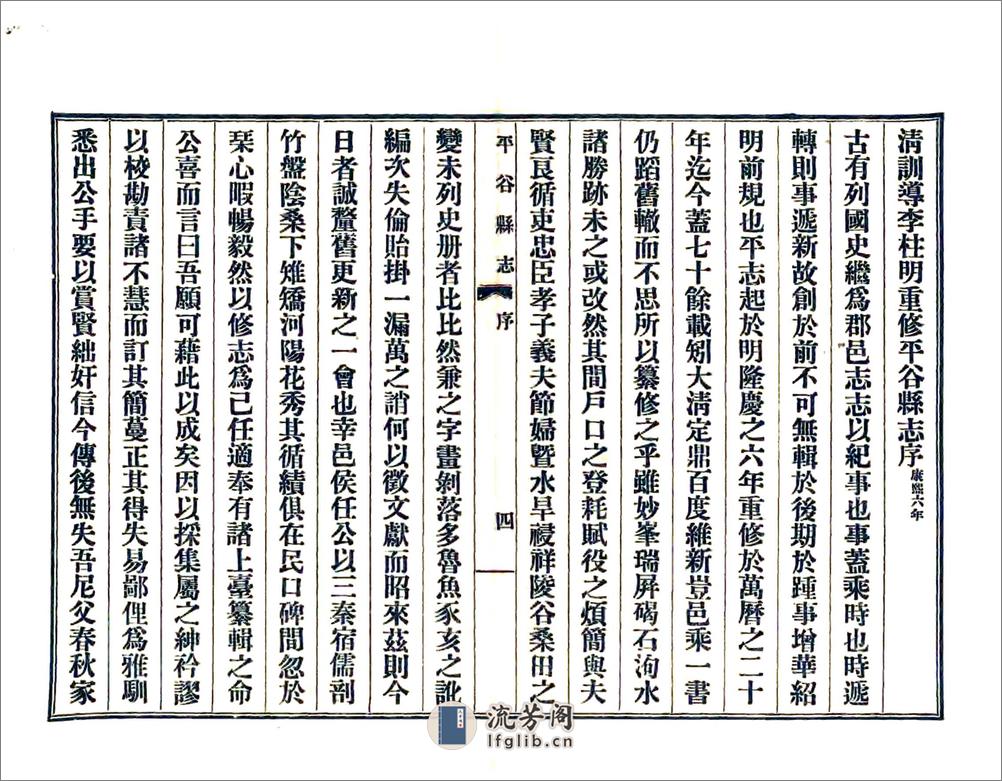 清訓導李柱明重修平谷縣志序康熙六年
古有列國史繼爲郡邑志志以紀事也事蓋乘時也時遞
轉則事遞新故創於前不可無輯於後期於踵事增華紹
明前規也平志起於明隆慶之六年重修於萬曆之二十
年迄今蓋七十餘載矧大淸定鼎百度維新豈邑乘一書
仍蹈舊轍而不思所以纂修之乎雖妙峯瑞屛碣石洵水
諸勝跡未之或改然其間戶口之登耗賦役之煩簡與夫
賢良循吏忠臣孝子義夫節婦曁水旱祲祥陵谷桑田之
平谷縣志 序 四
變未列史册者比比然兼之字畫剝落多魯魚豕亥之訛
編次失倫貽掛一漏萬之誚何以徵文獻而昭來茲則今
日者誠釐舊更新之一會也幸邑侯任公以三秦宿儒剖
竹盤陰桑下雉矯河陽花秀其循績俱在民口碑間忽於
琹心暇暢毅然以修志爲己任適奉有諸上臺纂輯之命
公喜而言曰吾願可藉此以成矣因以採集屬之紳衿謬
以校勘責諸不慧而訂其簡蔓正其得失易鄙俚爲雅馴
悉出公手要以賞賢絀奸信今傳後無失吾尼父春秋家
流芳阁
lfglib.cn